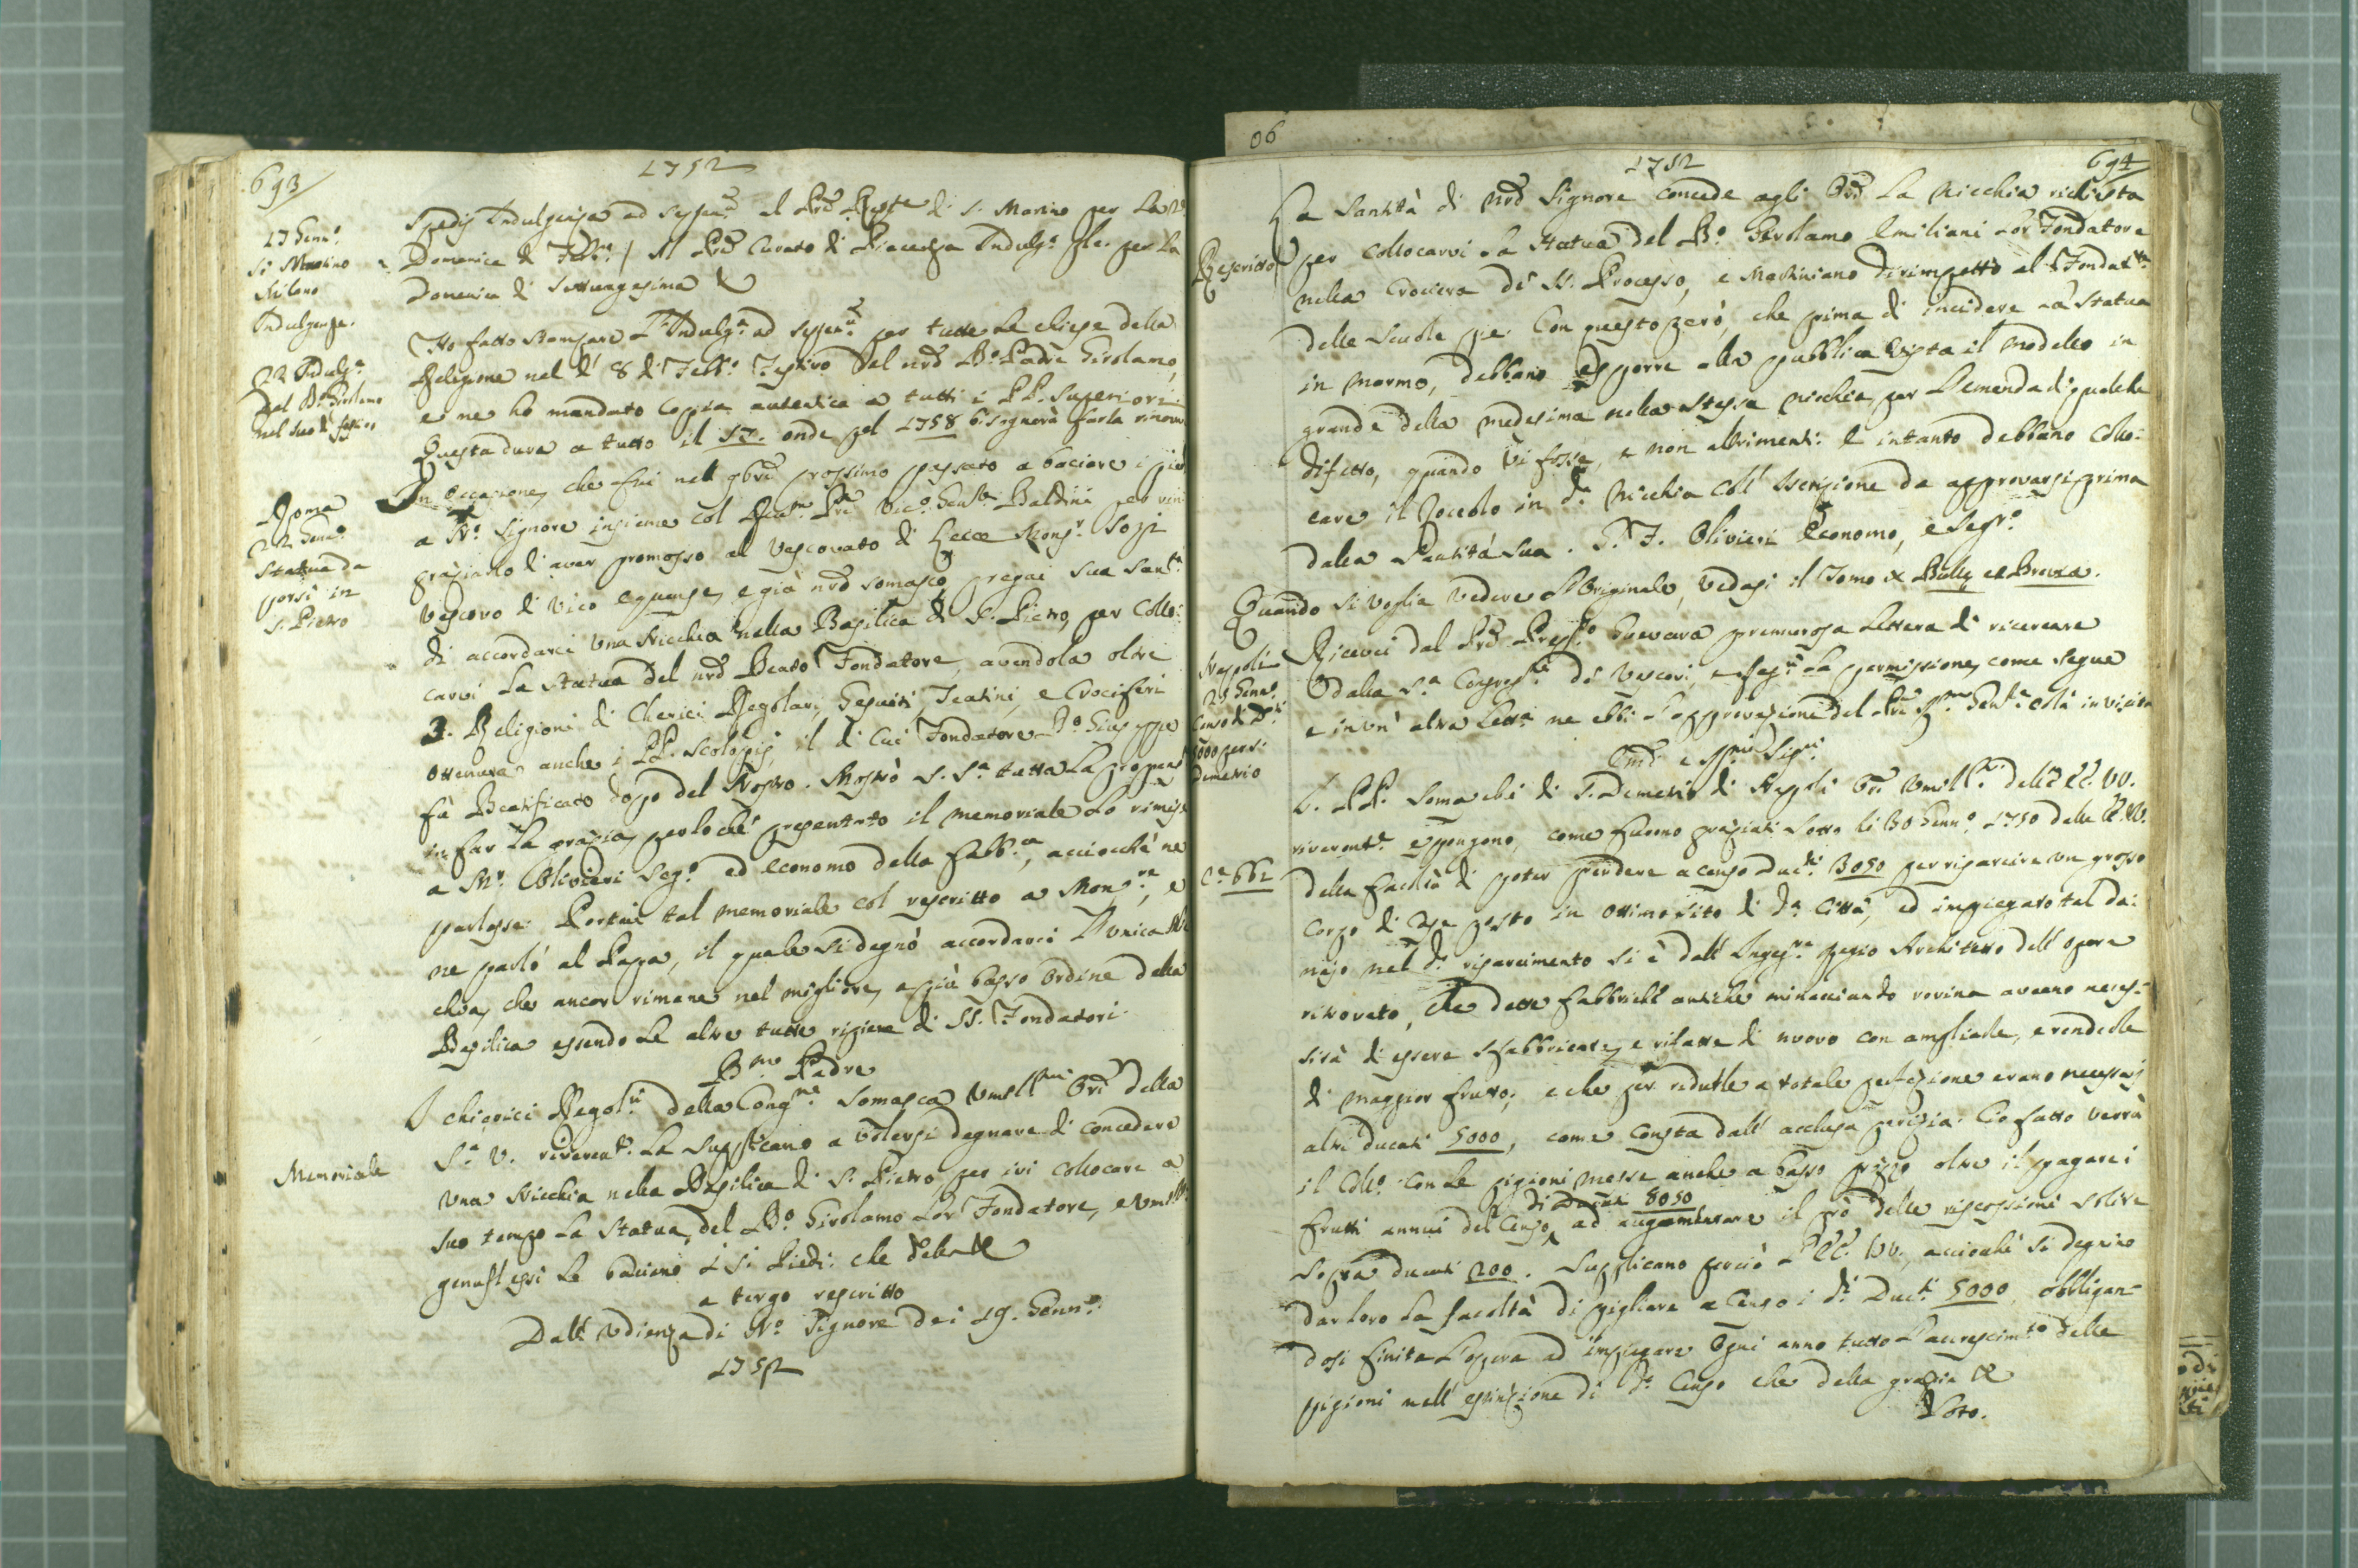 693
1752
17 Genn.º
S. Martino
Milano
Indulgenze.
Spedij Indulgenza ad septen. al Prē Rettore di S. Martino per la 2ª
Domenica di Febb.º / Al Prē Curato di Piacenza Indulg.ª Ple. per la
Domenica di Settuagesima &
22 Indulg.ª
del Bº Girolamo
nel suo dì festivo
Ho fatto stampare l'Indulg.ª ad septen. per tutte le chiese della
Religione nel dì 8 di Febb.º festivo del nrō Bº Padre Girolamo,
e ne ho mandato coppia autentica a tutti i PP. Superiori
Questa dura a tutto il 57. onde pel 1758 bisognerà farla rinovar
Roma
22 Genn.º
Statua da
porsi in
S. Pietro
In occasione, che fui nel 9bre prossimo passato a baciare i piedi
a Nº Signore insieme col Rev.mo Prē Vic.º Genle Baldini per rin
graziarlo d'aver promosso al Vescovato di Lecce Mons.r Sozj
Vescovo di Vico Equense, e già nrō somasco, pregai sua Sant.ª
di accordarci una Nicchia nella Basilica di S. Pietro, per collo:
carvi la Statua del nrō Beato Fondatore, avendola oltre
3. Religioni di Cherici Regolari, Gesuiti, Teatini, e Crociferi
ottenuta anche i PP. Scolopij, il di cui Fondatore Bº Giuseppe
fù Beatificato dopo del Nostro. Mostrò S. Sª tutta la propens
in far la grazia, perloché presentato il memoriale lo rimise
a Mr. Olivieri Seg.º ed economo della Fabb.ca, acciocchè ne
parlasse. Portai tal memoriale col rescritto a Mon.re, e
ne parlò al Papa, il quale si degnò accordarci l'unica Nic
chia, che ancor rimane nel migliore, e più basso ordine della
Basilica essendo le altre tutte ripiene di SS. Fondatori.
Bmo Padre
Memoriale
I chierici Regol.ri della Cong.ne Somasca Umill.mi Ori della
S.ª V. riverent.e la supplicano a volersi degnare di concedere
una Nicchia nella Basilica di S. Pietro per ivi collocare a
suo tempo la Statua del Bº Girolamo lor Fondatore, e umilm
genuflessi le baciano i Si Piedi. che della &
a tergo rescritto
Dall'Udienza di Nº Signore dei 19. Genn.º
1752
06
1752
694
Rescritto
La Santità di Nrō Signore concede agli Ori la Nicchia richiesta
per collocarvi la Statua del Bº Girolamo Emiliani lor Fondatore
nella Crociera di SS. Processo, e Martiniano dirimpetto al Fondat.re
delle Scuole pie. Con questo però, che prima di incidere la Statua
in marmo, debbano esporre alla pubblica vista il modello in
grande della medesima nella stessa nicchia per l'emenda di qualche
difetto, quando vi fosse, e non altrimenti. E intanto debbano collo:
care il zoccolo in dª Nicchia coll'iscrizione da approvarsi prima
dalla Santità sua. P. F. Olivieri Economo, e Segr.º
Quando si voglia vedere l'Originale, vedasi il Tomo Bullæ et Brevia.
Nappoli
25 Genn.º
Censo di D.ti
5000 per S.
Demetrio
Ricevei dal Prē Prep.to Guevara premurosa lettera di ricercare
dalla S.ª Congreg.e de Vescovi, e Reg.ri la permissione, come segue
e in un'altra lett.ª ne ebbi l'approvazione del Prē Rmo Gen.le colà in visita
Emi e Rmi Sig.ri
Cª 662
I. PP. Somaschi di S. Demetrio di Napoli Ori Umill.i dell'EE. VV.
riverent.e espongono, come furono graziati sotto li 30 Genn.º 1750 dalle EE. VV.
della facoltà di poter prendere a censo Duc.ti 3050 per riparcire un grosso
corpo di case posto in ottimo sito di dª Città, ed impiegato tal da:
najo nel dº riparcimento si è dall'Ingeg.re Regio Architetto dell'opera
ritrovato, che dette fabbriche antiche minacciando rovina aveano neces:
sità di essere sfabbricate, e rifatte di nuovo con ampliarle, e renderle
di maggior frutto; e che per ridurle a totale perfezione erano necessarj
altri ducati 5000, come consta dall'acclusa perizia. Cio fatto verrà
il Coll.º con le pigioni messe anche a basso prezzo oltre il pagare i
di Ducati 8050
frutti annui del Censo, ad augumentare il prò delle riscossioni solite
sopra ducati 200. Supplicano perciò l'EE. VV. acciocchè si degnino
dar loro la facoltà di pigliare a Censo i dti Duc.ti 5000, obbligan-
dosi finita l'opera ad impiegare ogni anno tutto l'accrescim.to delle
pigioni nell'estinzione di dº Censo che della grazia &
Foro.